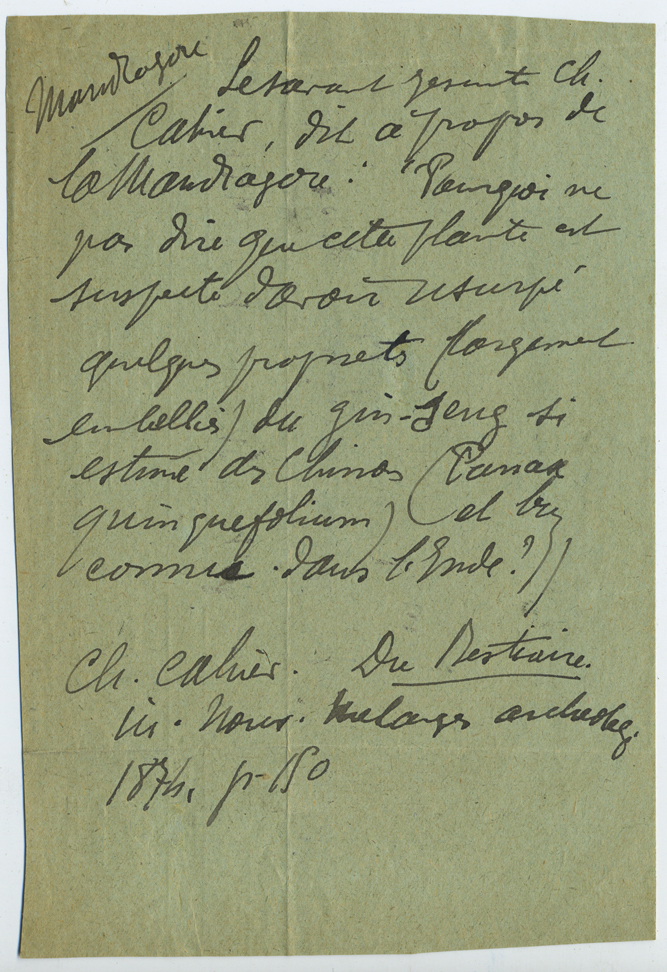 Mandragore
Le savant jesuite Ch.
Cahier, dit à propos de
la Mandragore: "Pourquoi ne
pas dire que cette plante est
suspecte d'avoir usurpé
quelques propriets (largement
embellies) du gin-seng si
estimé des Chinois (Panax
quinquefolium) et
connue dans l'Inde?"
Ch. Cahier. Du Bestiaire.
in. Nouv. Melanges archeolog.
1874, p. 150